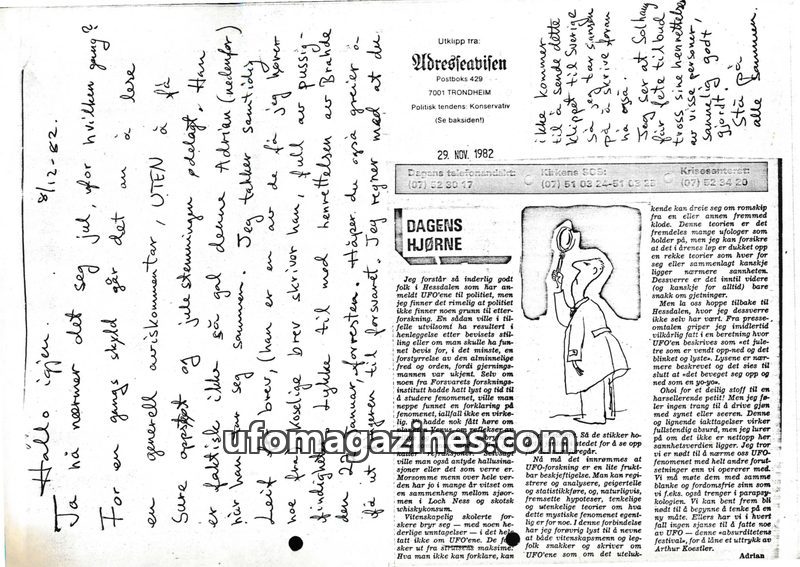 8/12-82.
Hallo igjen.
Ja nå nærmer det seg jul, for hvilken gang?
For en gangs skyld går det an å lese
en generell aviskommentar, UTEN å få
Sure oppstøt og julestemningen ødelagt. Han
er faktisk ikke så gal denne Adrian (nedenfor)
brev, (han er en av de få jeg hører
noe fra)
brev skriver han, full av pussig-
Lykke til med henrettelsen av Brahde
den
januar, forresten. Håper du også greier å
få ut
til forsvaret. Jeg regner med at du
ikke kommer
til å sende dette
klippet til Sverige
så jeg tar sansen
på å skrive foran
nå også.
Jeg ser at Solhaug
får fete tilbud
tross sine henrettelser
av visse personer,
sannelig godt
gjort!
Stå på
alle sammen.
Utklipp fra:
Adresseavisen
Postboks 429
7001 TRONDHEIM
Politisk tendens: Konservativ
(Se baksiden!)
29. NOV. 1982
Dagens telefonandakt:
(07) 52 30 17
Kirkens SOS:
(07) 51 03 24-51 03 25
Krisesenteret:
(07) 52 34 20
DAGENS
HJØRNE
Jeg forstår så inderlig godt
folk i Hessdalen som har an-
meldt UFO'ene til politiet, men
jeg finner det rimelig at politiet
ikke finner noen grunn til etter-
forskning. En sådan ville i til-
felle utvilsomt ha resultert i
henleggelse etter bevisets stil-
ling eller om man skulle ha fun-
net bevis for, i det minste, en
forstyrrelse av den alminnelige
fred og orden, fordi gjernings-
mannen var ukjent. Selv om
noen fra Forsvarets forsknings-
institutt hadde hatt lyst og tid til
å studere fenomenet, ville man
neppe funnet en forklaring på
fenomenet, iallfall ikke en virke-
hadde nok fått høre om
ville man også ty til
ville man også antyde hallusina-
sjoner eller det som verre er.
Morsomme menn over hele ver-
den har jo i mange år vitset om
en sammenheng mellom sjøor-
men i Loch Ness og skotsk
whiskykonsum.
Vitenskapelig skolerte for-
skere bryr seg — med noen he-
derlige unntagelser — i det hele
tatt ikke om UFO'ene. De
sker ut fra strutsens maksime:
Hva man ikke kan forklare, kan
Så de stikker ho-
redet for å se opp
Nå må det innrømmes at
UFO-forskning er en lite frukt-
bar beskjeftigelse. Man kan regi-
strere og analysere, geigertelle
og statistikkføre, og, naturligvis,
fremsette hypoteser, tenkelige
og utenkelige teorier om hva
dette mystiske fenomenet egent-
lig er for noe. I denne forbindelse
har jeg forøvrig lyst til å nevne
at både vitenskapsmenn og leg-
folk snakker og skriver om
UFO'ene som om det uteluk-
kende kan dreie seg om romskip
fra en eller annen fremmed
klode. Denne teorien er det
fremdeles mange ufologer som
holder på, men jeg kan forsikre
at det i årenes løp er dukket opp
en rekke teorier som hver for
seg eller sammenlagt kanskje
ligger nærmere sannheten.
Dessverre er det inntil videre
(og kanskje for alltid) bare
snakk om gjetninger.
Men la oss hoppe tilbake til
Hessdalen, hvor jeg dessverre
ikke selv har vært. Fra presse-
omtalen griper jeg imidlertid
vilkårlig fatt i en beretning hvor
UFO'en beskrives som «et jule-
tre som er vendt opp-ned og det
blinket og lyste». Lysene er nær-
mere beskrevet og det sies til
slutt at «det beveget seg opp og
ned som en yo-yo».
Ohoi for et deilig stoff til en
harsellerende petit! Men jeg fø-
ler ingen trang til å drive gjøn
med synet eller seeren. Denne
og lignende iakttagelser virker
fullstendig absurd, men jeg lurer
på om det ikke er nettopp her
sannhetsverdien ligger. Jeg tror
vi er nødt til å nærme oss UFO-
fenomenet med helt andre forut-
setninger enn vi opererer med.
Vi må møte dem med samme
blanke og fordomsfrie sinn som
vi f.eks. også trenger i parapsy-
kologien. Vi kan bent frem bli
nødt til å begynne å tenke på en
ny måte. Ellers har vi i hvert
fall ingen sjanse til å fatte noe
av UFO — denne «absurditetens
festival», for å låne et uttrykk av
Arthur Koestler.
Adrian
ufomagazines.com